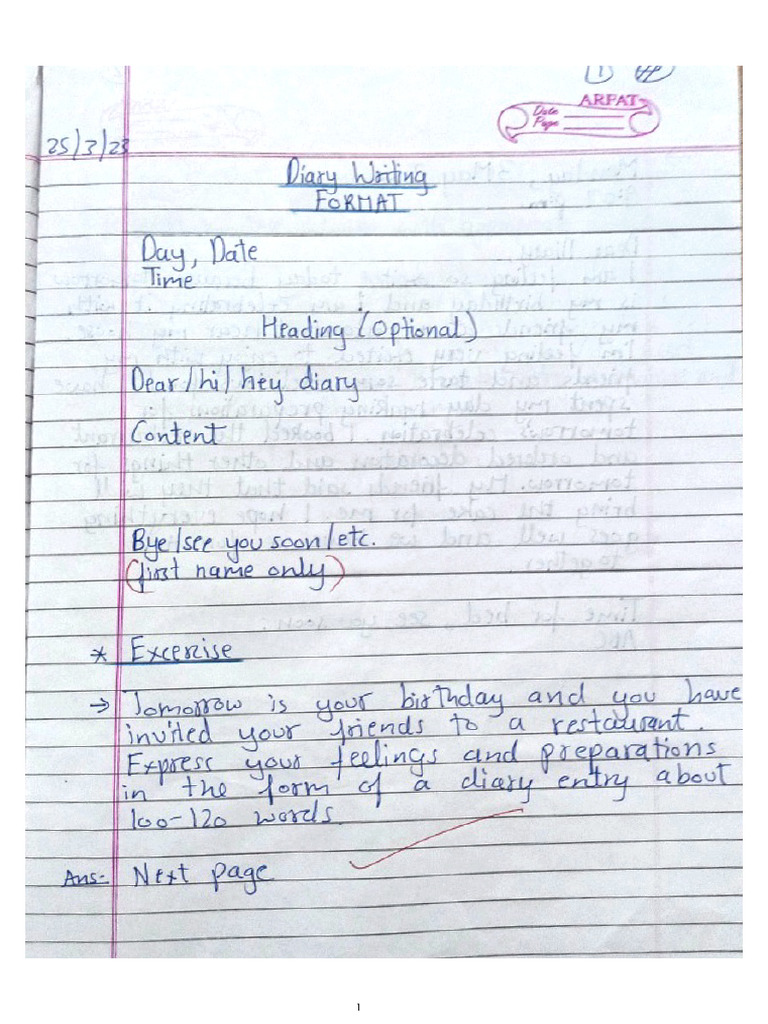 1
ARPAT
Date
Page
25/3/23
Diary Writing
FORMAT
Day, Date
Time
Heading (Optional)
Dear/hi/hey diary
Content
Bye/see you soon/etc.
(first name only)
* Excercise
→ Tomorrow is your birthday and you have
invited your friends to a restaurant.
Express your feelings and preparations
in the form of a diary entry about
100-120 words.
Ans:- Next page
1